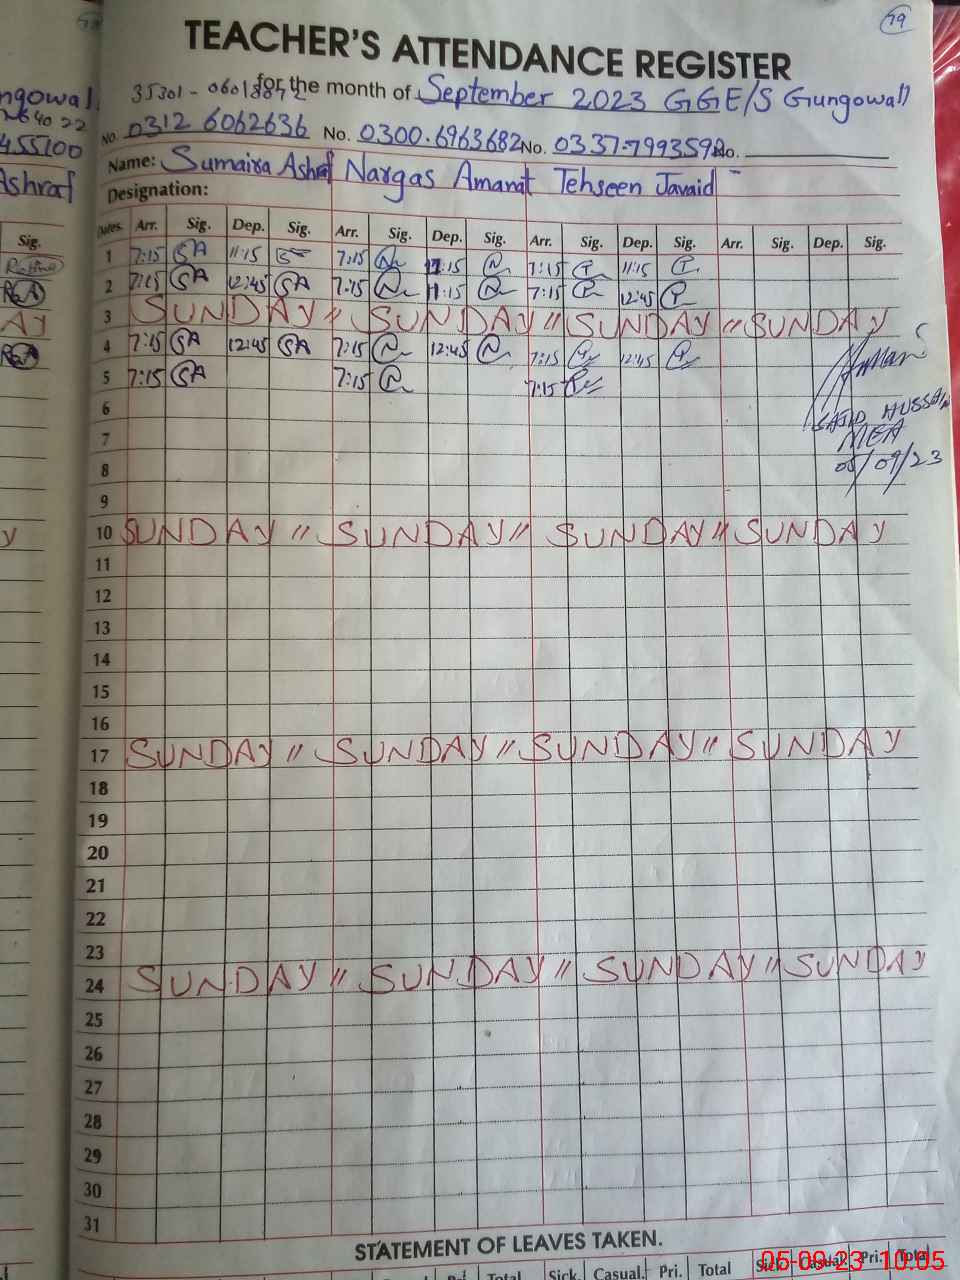 79
TEACHER'S ATTENDANCE REGISTER
for the month of September 2023 GGE/S Gungowall
No. 0312 6062636 No. 0300.6963682 No. 0337-7993592 No.
Name: Sumaira Ashraf Nargas Amanat Tehseen Javaid
Designation:
Dates. Arr. Sig. Dep. Sig. Arr. Sig. Dep. Sig. Arr. Sig. Dep. Sig. Arr. Sig. Dep. Sig.
1 7:15 SA 11:15 7:15 N 11:15 N 7:15 T 11:15 T
2 7:15 SA 12:45 SA 7:15 N 11:15 N 7:15 T 12:45 T
3 SUNDAY " SUNDAY " SUNDAY " SUNDAY
4 7:15 SA 12:45 SA 7:15 N 12:45 N 7:15 T 12:45 T
5 7:15 SA 7:15 N 7:15 T
SAJID HUSSAIN
MEA
05/09/23
6
7
8
9
10 SUNDAY " SUNDAY " SUNDAY " SUNDAY
11
12
13
14
15
16
17 SUNDAY " SUNDAY " SUNDAY " SUNDAY
18
19
20
21
22
23
24 SUNDAY " SUNDAY " SUNDAY " SUNDAY
25
26
27
28
29
30
31
STATEMENT OF LEAVES TAKEN.
Casual. Pri. Total Sick. Casual. Pri. Total Sick. Casual. Pri. Total
05-09-23 10:05
455100
Ashraf
Sig.